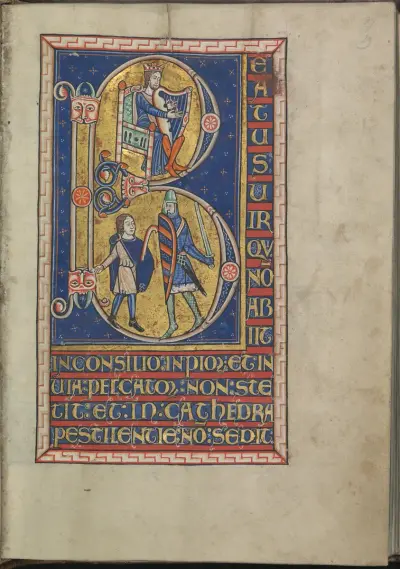 B
E
A
T
U
S
U
IR
QV̄
NŌ
AB
IIT
IN CONSILIO: INPIOꝜ: ET IN
UIA: PECCATOꝜ: NON: STE
TIT: ET: IN: CATHEDRA
PESTILENTIE: NO: SEDIT: